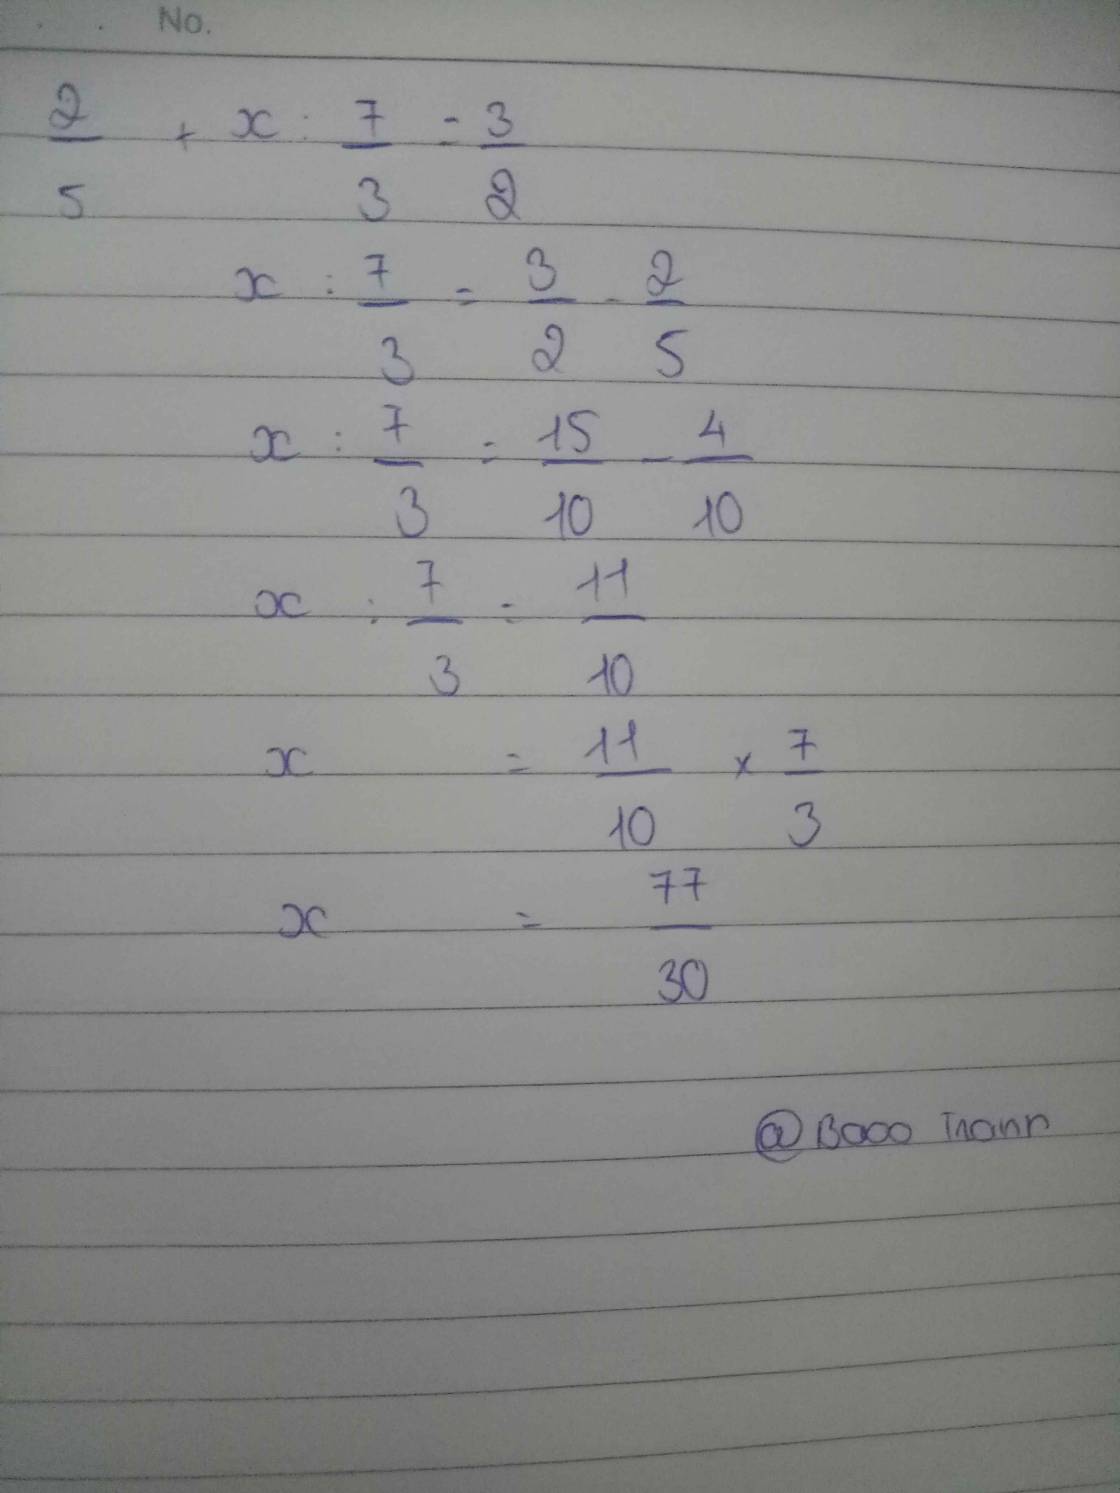 No.
2/5 + x : 7/3 = 3/2
x : 7/3 = 3/2 - 2/5
x : 7/3 = 15/10 - 4/10
x : 7/3 = 11/10
x = 11/10 × 7/3
x = 77/30